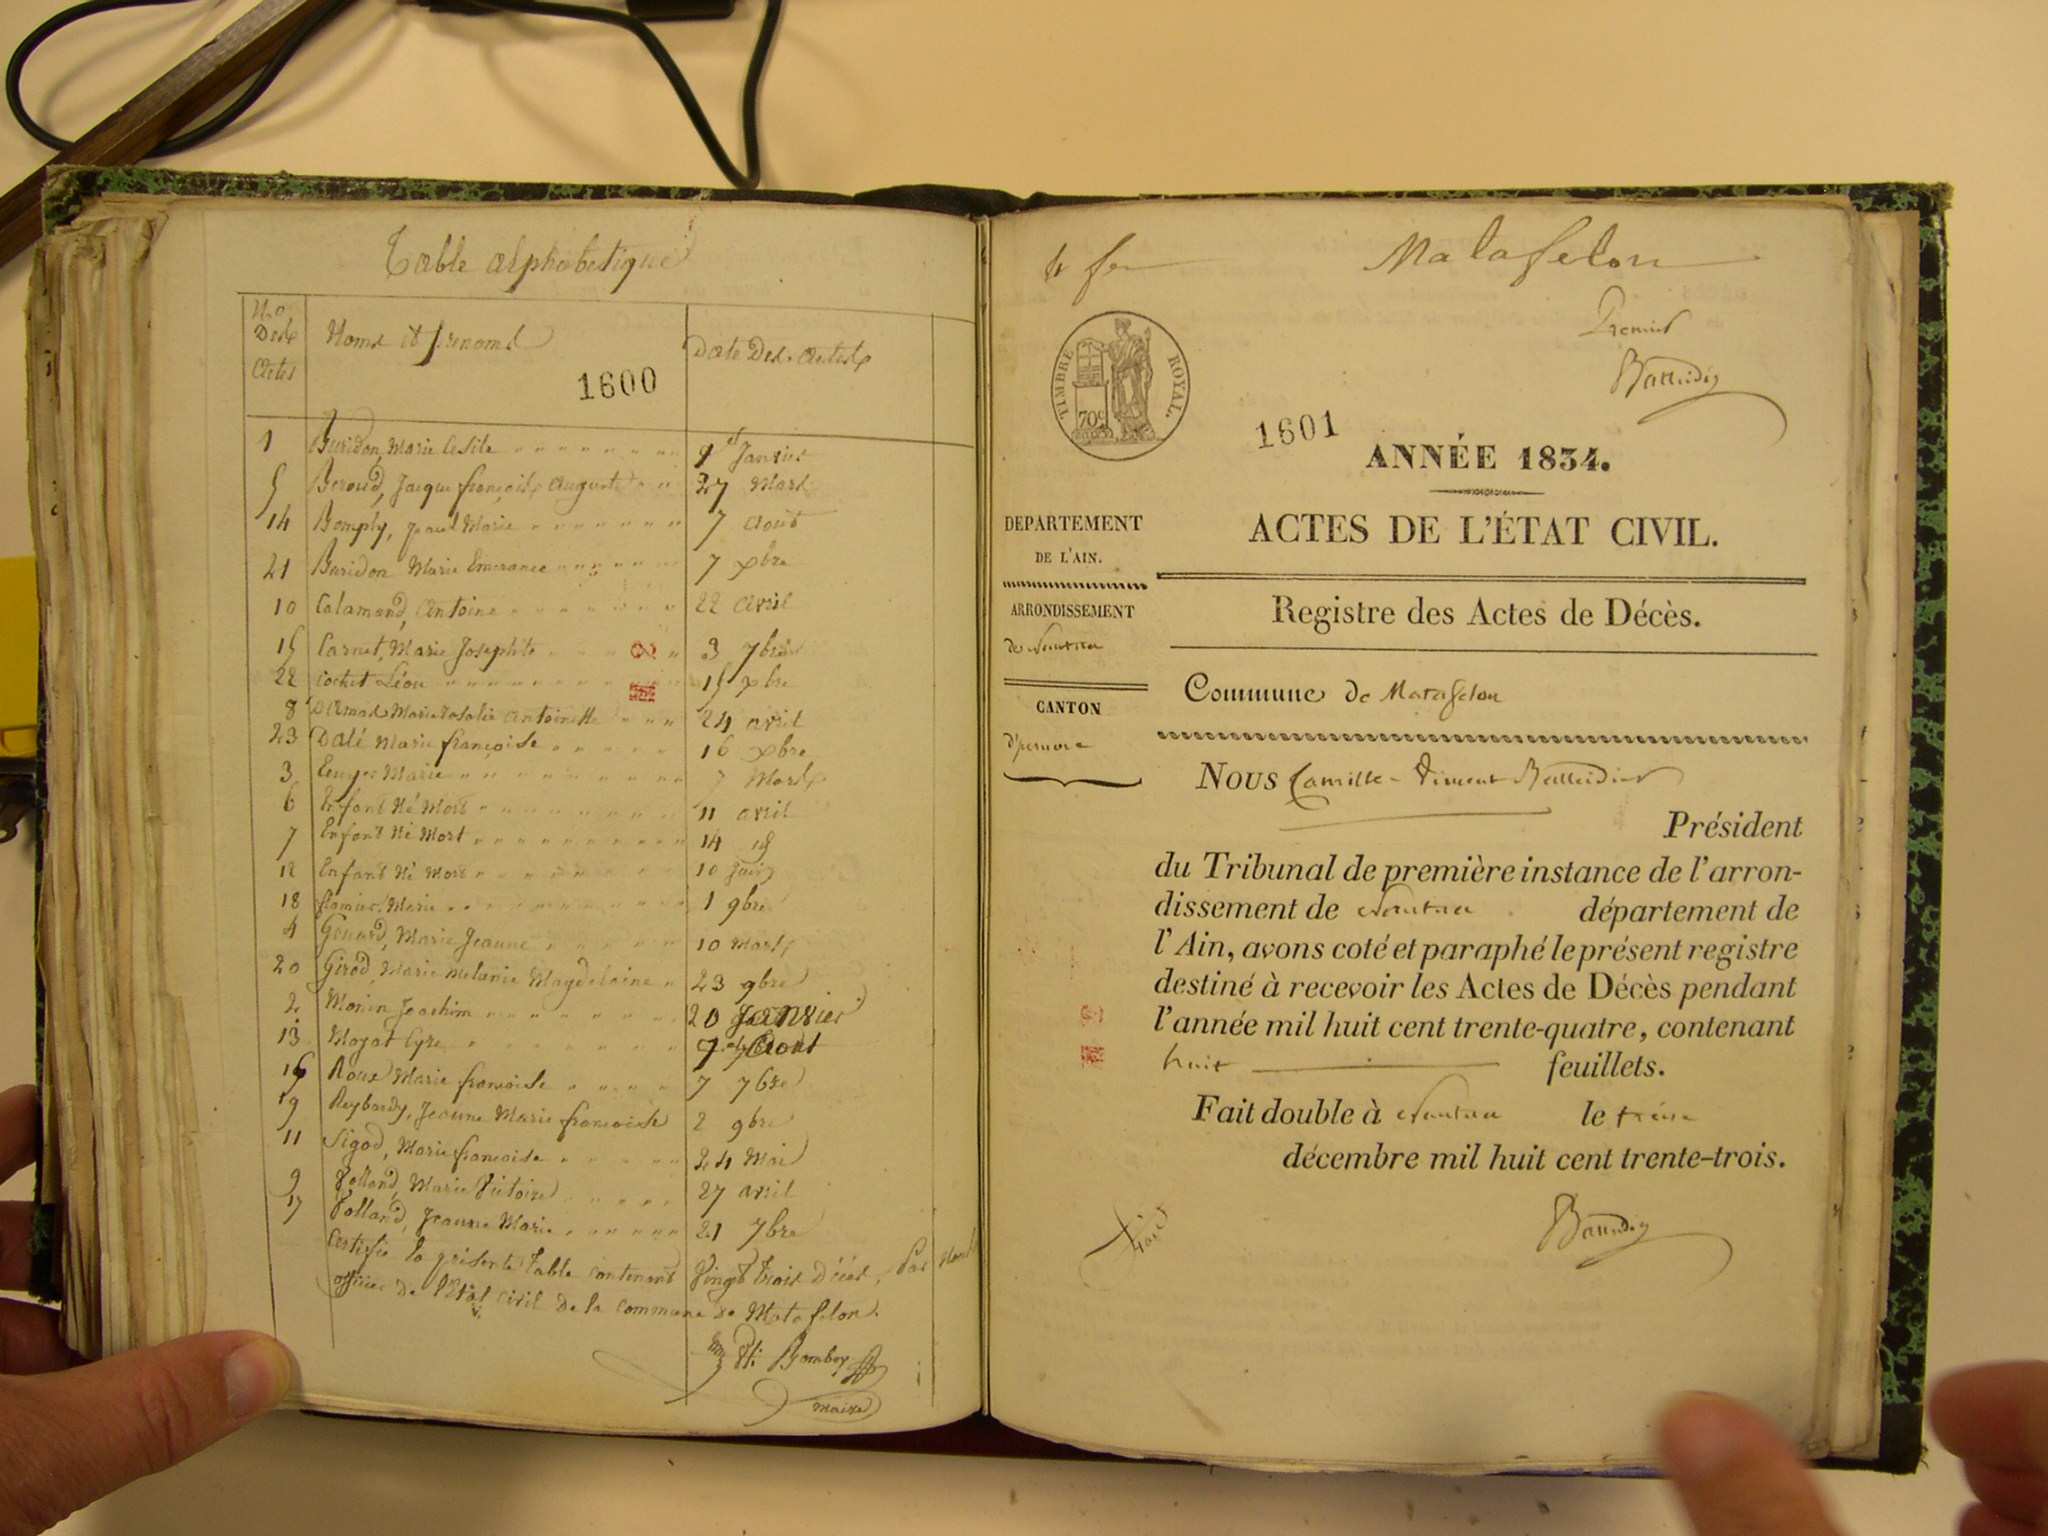 Table alphabetique
No Des Actes
Noms et Prenoms
Date Des Actes
1600
1 Buridon, Marie Cesile 1er Janvier
5 Beroud, Jacque françois Auguste 27 Mars
14 Bomply, paul Marie 7 Aout
21 Buridon Marie Emerance 7 xbre
10 Calamand, Antoine 22 Avril
15 Carnet, Marie Josephte 3 7bre
22 Cochet Léon 15 xbre
8 Marie rosalie Antoinette 24 avril
23 Dalé Marie françoise 16 xbre
3 Marie 7 Mars
6 Enfant Né Mort 11 avril
7 Enfant Né Mort 14 id
12 Enfant Né Mort 10 Juin
18 Marie 1 9bre
4 Genard, Marie Jeanne 10 Mars
20 Girod, Marie Melanie Magdelaine 23 9bre
2 Morin Joachim 20 Janvier
13 Mogat Cyre 7 Aout
16 Roux Marie françoise 7 7bre
19 Reybardy, Jeanne Marie françoise 2 9bre
11 Sigod, Marie françoise 24 Mai
9 Volland, Marie Victoire 27 avril
17 Volland, Jeanne Marie 21 7bre
Certifié la présente Table contenant Vingt trois Décès, Par Nous
officier de l'Etat civil de la commune de Matafelon.
Bomboy
maire
Matafelon
Premier
TIMBRE ROYAL
70c
1601
ANNÉE 1834.
ACTES DE L'ÉTAT CIVIL.
DEPARTEMENT
DE L'AIN.
ARRONDISSEMENT
de Nantua
CANTON
d'
Registre des Actes de Décès.
Commune de Matafelon
NOUS Camille-Vincent
Président
du Tribunal de première instance de l'arron-
dissement de Nantua département de
l'Ain, avons coté et paraphé le présent registre
destiné à recevoir les Actes de Décès pendant
l'année mil huit cent trente-quatre, contenant
huit feuillets.
Fait double à Nantua le treize
décembre mil huit cent trente-trois.